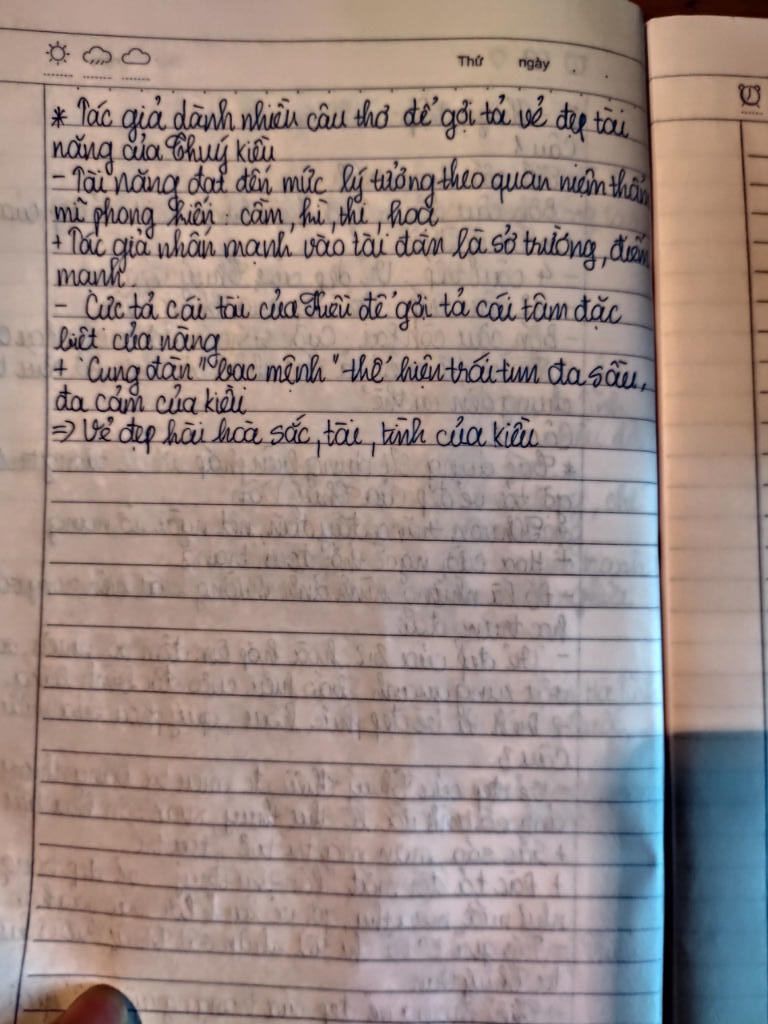 Thứ ngày
* Tác giả dành nhiều câu thơ để gợi tả vẻ đẹp tài
năng của Thuý kiều
- Tài năng đạt đến mức lý tưởng theo quan niệm thẩm
mĩ phong kiến: cầm, kì, thi, hoạ
+ Tác giả nhấn mạnh vào tài đàn là sở trường, điểm
mạnh.
- Cực tả cái tài của Kiều để gợi tả cái tâm đặc
biệt của nàng
+ Cung đàn "bạc mệnh" thể hiện trái tim đa sầu,
đa cảm của kiều
=> Vẻ đẹp hài hoà sắc, tài, tình của kiều